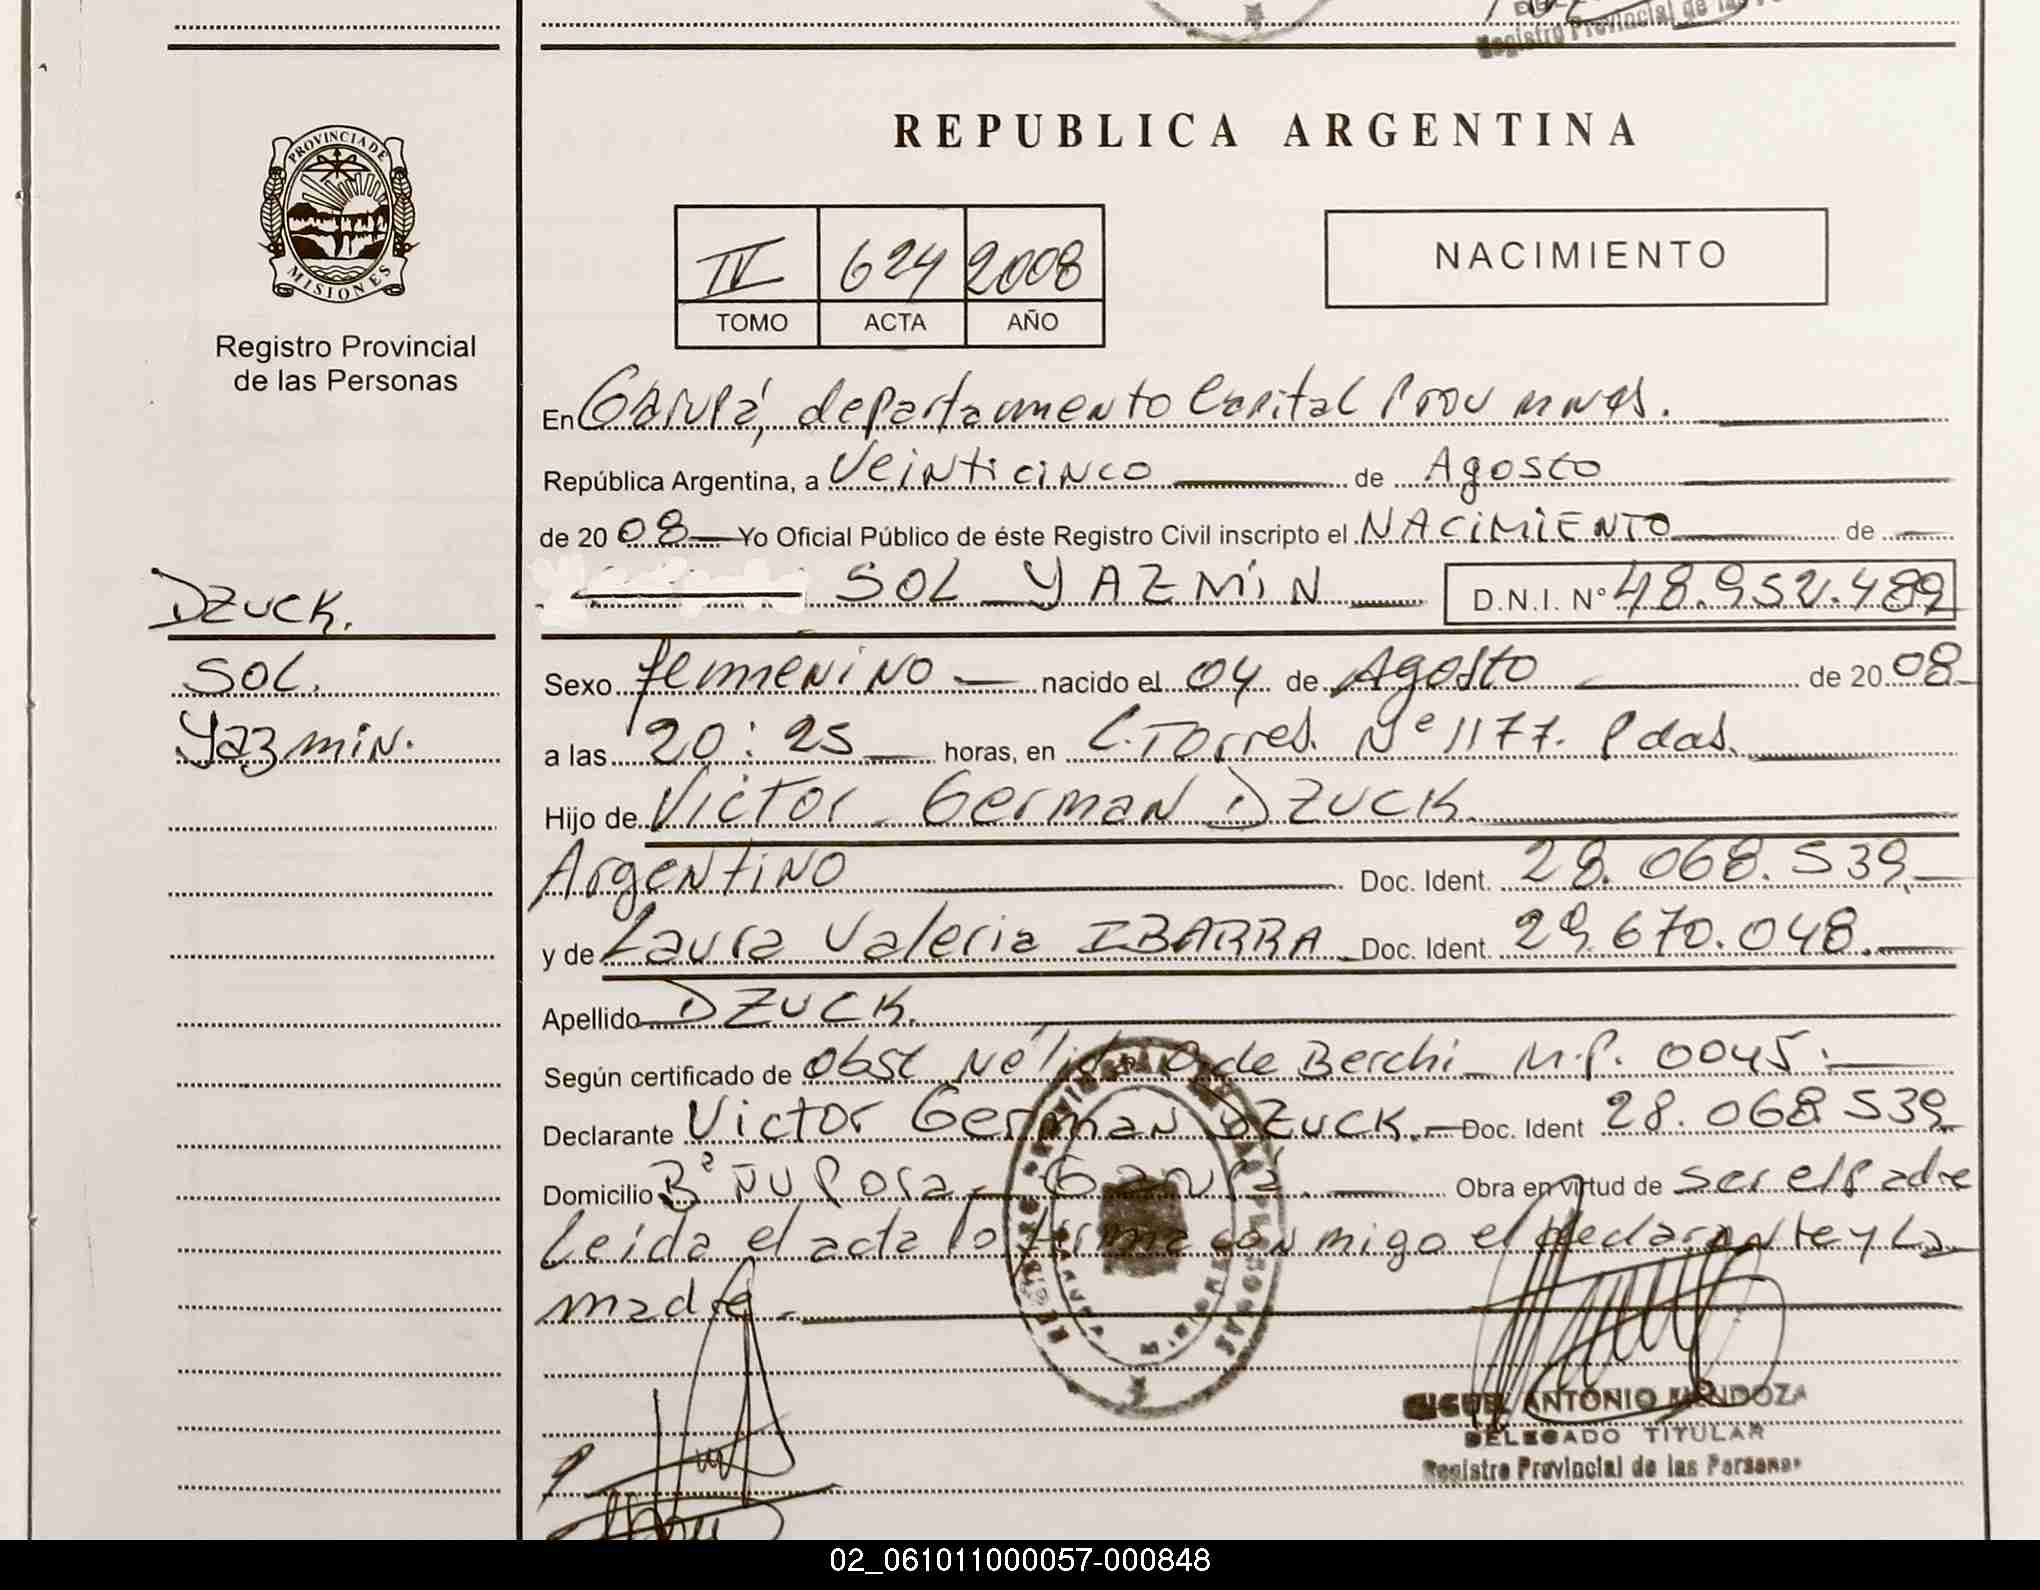 Registro Provincial de las
REPUBLICA ARGENTINA
PROVINCIA DE
MISIONES
Registro Provincial
de las Personas
IV 624 2008
TOMO ACTA AÑO
NACIMIENTO
En Garupá, departamento Capital Prov mnes.
República Argentina, a Veinticinco de Agosto
de 2008 Yo Oficial Público de éste Registro Civil inscripto el NACIMIENTO de
SOL YAZMIN D.N.I. Nº 48.952.489
DZUCK.
SOL.
Yazmin.
Sexo femenino nacido el 04 de Agosto de 2008
a las 20:25 horas, en C. Torres. Nº 1177. Pdas.
Hijo de Victor German DZUCK.
Argentino Doc. Ident. 28.068.539
y de Laura Valeria IBARRA Doc. Ident. 29.670.048.
Apellido DZUCK.
Según certificado de Obst Nélida O de Berchi M.P. 0045.
Declarante Victor German DZUCK. Doc. Ident 28.068.539
Domicilio Bº ÑU Pora - Garupá. Obra en virtud de ser el padre
Leída el acta lo firma conmigo el declarante y La
madre.
MIGUEL ANTONIO MENDOZA
DELEGADO TITULAR
Registro Provincial de las Personas
02_061011000057-000848